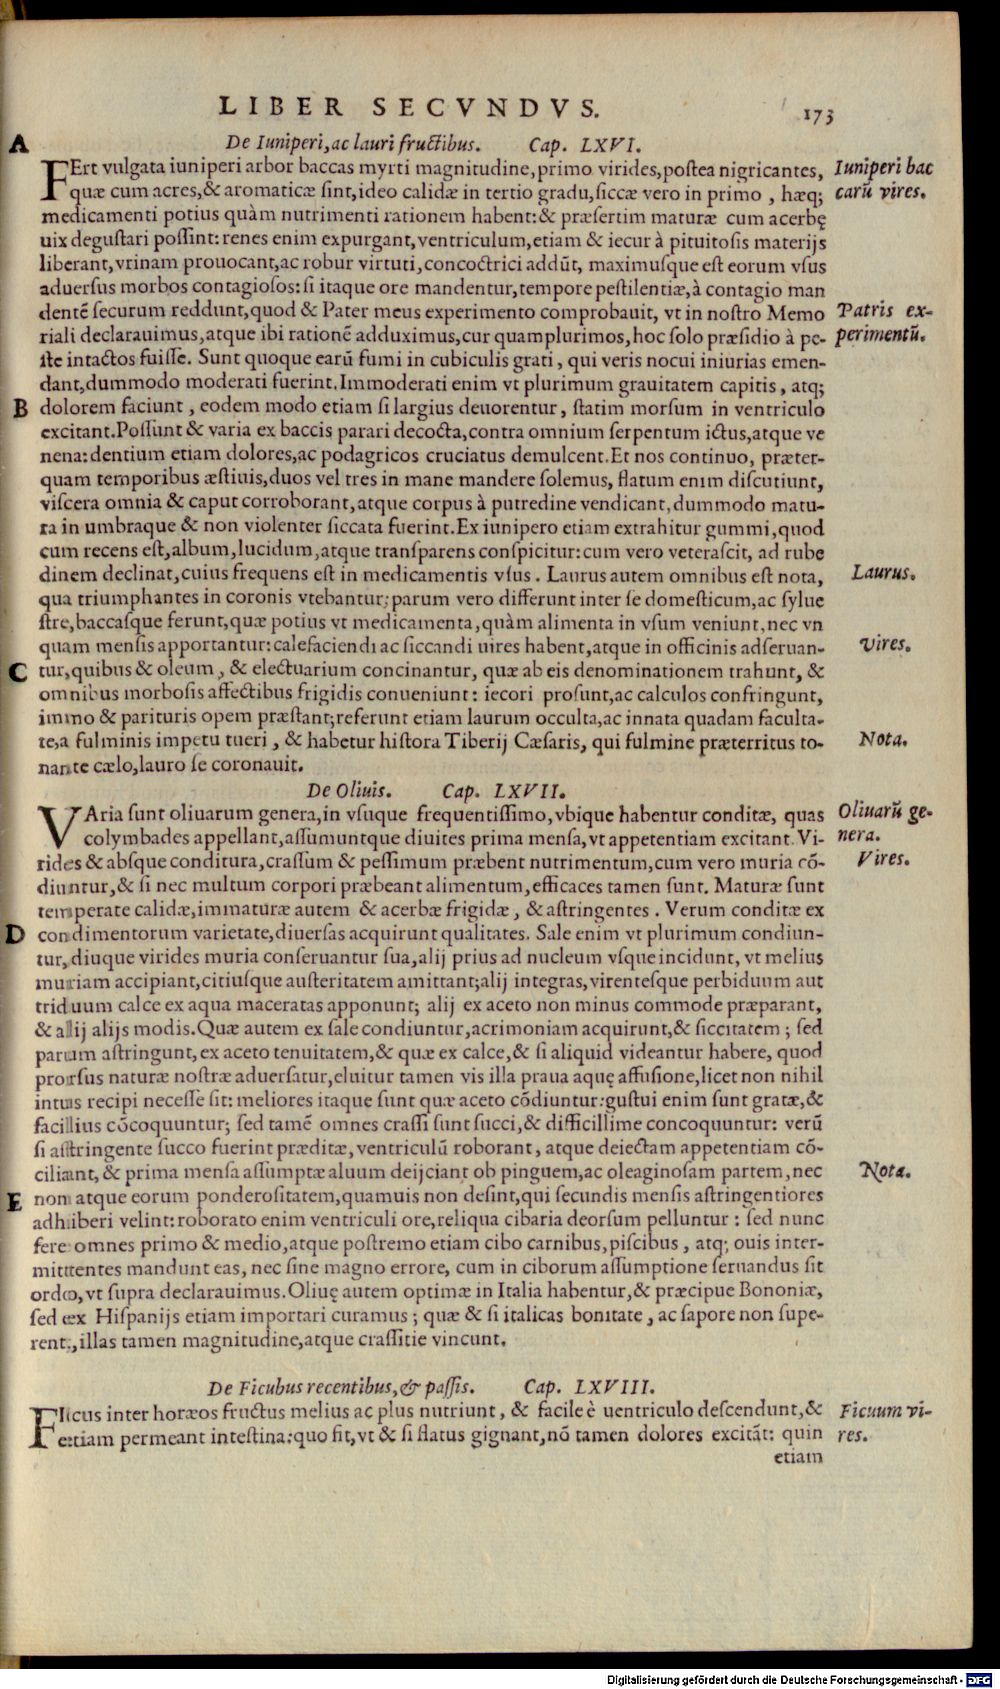 LIBER SECVNDVS. 173
A
De Iuniperi, ac lauri fructibus. Cap. LXVI.
FErt vulgata iuniperi arbor baccas myrti magnitudine, primo virides, postea nigricantes,
Iuniperi bac
quæ cum acres, & aromaticæ sint, ideo calidæ in tertio gradu, siccæ vero in primo, hæq;
carū vires.
medicamenti potius quàm nutrimenti rationem habent: & præsertim maturæ cum acerbę
uix degustari possint: renes enim expurgant, ventriculum, etiam & iecur à pituitosis materijs
liberant, vrinam prouocant, ac robur virtuti, concoctrici addūt, maximusque est eorum vsus
aduersus morbos contagiosos: si itaque ore mandentur, tempore pestilentiæ, à contagio man
dentē securum reddunt, quod & Pater meus experimento comprobauit, vt in nostro Memo
Patris ex-
riali declarauimus, atque ibi rationē adduximus, cur quamplurimos, hoc solo præsidio à pe-
perimentū.
ste intactos fuisse. Sunt quoque earū fumi in cubiculis grati, qui veris nocui iniurias emen-
dant, dummodo moderati fuerint. Immoderati enim vt plurimum grauitatem capitis, atq;
B
dolorem faciunt, eodem modo etiam si largius deuorentur, statim morsum in ventriculo
excitant. Possunt & varia ex baccis parari decocta, contra omnium serpentum ictus, atque ve
nena: dentium etiam dolores, ac podagricos cruciatus demulcent. Et nos continuo, præter-
quam temporibus æstiuis, duos vel tres in mane mandere solemus, flatum enim discutiunt,
viscera omnia & caput corroborant, atque corpus à putredine vendicant, dummodo matu-
ra in umbraque & non violenter siccata fuerint. Ex iunipero etiam extrahitur gummi, quod
cum recens est, album, lucidum, atque transparens conspicitur: cum vero veterascit, ad rube
dinem declinat, cuius frequens est in medicamentis vsus. Laurus autem omnibus est nota,
Laurus.
qua triumphantes in coronis vtebantur; parum vero differunt inter se domesticum, ac sylue
stre, baccasque ferunt, quæ potius vt medicamenta, quàm alimenta in vsum veniunt, nec vn
quam mensis apportantur: calefaciendi ac siccandi uires habent, atque in officinis adseruan-
vires.
C
tur, quibus & oleum, & electuarium concinantur, quæ ab eis denominationem trahunt, &
omnibus morbosis affectibus frigidis conueniunt: iecori prosunt, ac calculos confringunt,
immo & parituris opem præstant; referunt etiam laurum occulta, ac innata quadam faculta-
te, a fulminis impetu tueri, & habetur histora Tiberij Cæsaris, qui fulmine præterritus to-
Nota.
nante cælo, lauro se coronauit.
De Oliuis. Cap. LXVII.
VAria sunt oliuarum genera, in vsuque frequentissimo, vbique habentur conditæ, quas
Oliuarū ge-
colymbades appellant, assumuntque diuites prima mensa, vt appetentiam excitant. Vi-
nera.
rides & absque conditura, crassum & pessimum præbent nutrimentum, cum vero muria cō-
Vires.
diuntur, & si nec multum corpori præbeant alimentum, efficaces tamen sunt. Maturæ sunt
temperate calidæ, immaturæ autem & acerbæ frigidæ, & astringentes. Verum conditæ ex
D
condimentorum varietate, diuersas acquirunt qualitates. Sale enim vt plurimum condiun-
tur, diuque virides muria conseruantur sua, alij prius ad nucleum vsque incidunt, vt melius
muriam accipiant, citiusque austeritatem amittant; alij integras, virentesque perbiduum aut
triduum calce ex aqua maceratas apponunt; alij ex aceto non minus commode præparant,
& alij alijs modis. Quæ autem ex sale condiuntur, acrimoniam acquirunt, & siccitatem; sed
parum astringunt, ex aceto tenuitatem, & quæ ex calce, & si aliquid videantur habere, quod
prorsus naturæ nostræ aduersatur, eluitur tamen vis illa praua aquę affusione, licet non nihil
intus recipi necesse sit: meliores itaque sunt quæ aceto cōdiuntur: gustui enim sunt gratæ, &
facilius cōcoquuntur; sed tamē omnes crassi sunt succi, & difficillime concoquuntur: verū
si astringente succo fuerint præditæ, ventriculū roborant, atque deiectam appetentiam cō-
ciliant, & prima mensa assumptæ aluum deijciant ob pinguem, ac oleaginosam partem, nec
Nota.
E
non atque eorum ponderositatem, quamuis non desint, qui secundis mensis astringentiores
adhiberi velint: roborato enim ventriculi ore, reliqua cibaria deorsum pelluntur: sed nunc
fere omnes primo & medio, atque postremo etiam cibo carnibus, piscibus, atq; ouis inter-
mittentes mandunt eas, nec sine magno errore, cum in ciborum assumptione seruandus sit
ordo, vt supra declarauimus. Oliuę autem optimæ in Italia habentur, & præcipue Bononiæ,
sed ex Hispanijs etiam importari curamus; quæ & si italicas bonitate, ac sapore non supe-
rent, illas tamen magnitudine, atque crassitie vincunt.
De Ficubus recentibus, & passis. Cap. LXVIII.
FIcus inter horæos fructus melius ac plus nutriunt, & facile è uentriculo descendunt, &
Ficuum vi-
etiam permeant intestina: quo fit, vt & si flatus gignant, nō tamen dolores excitāt: quin
res.
etiam
Digitalisierung gefördert durch die Deutsche Forschungsgemeinschaft - DFG